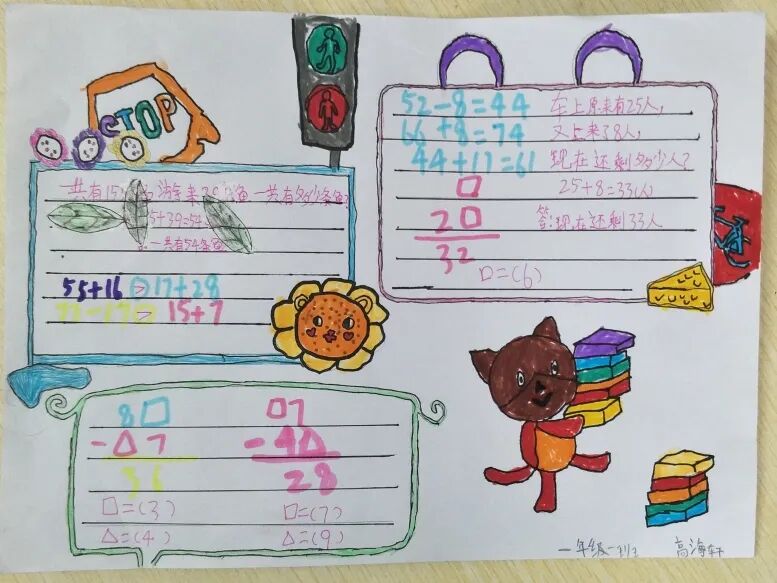 STOP
共有15 游来39 鱼 一共有多少条鱼?
5+39=54
一共有54条鱼
55+16 > 17+28
> 15+7
52-8=44
66+8=74
44+17=61
□
2□
32
□=(6)
车上原来有25人,
又上来了8人,
现在还剩多少人?
25+8=33(人)
答:现在还剩33人
8□
-△7
36
□=(3)
△=(4)
□7
-4△
28
□=(7)
△=(9)
一年级一班 高海轩